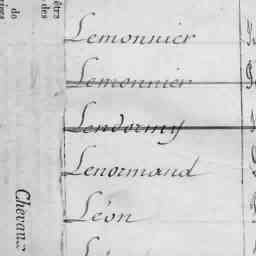 Lemonnier
Lemonnier
Lendormy
Lenormand
Léon
des
de
Chevaux